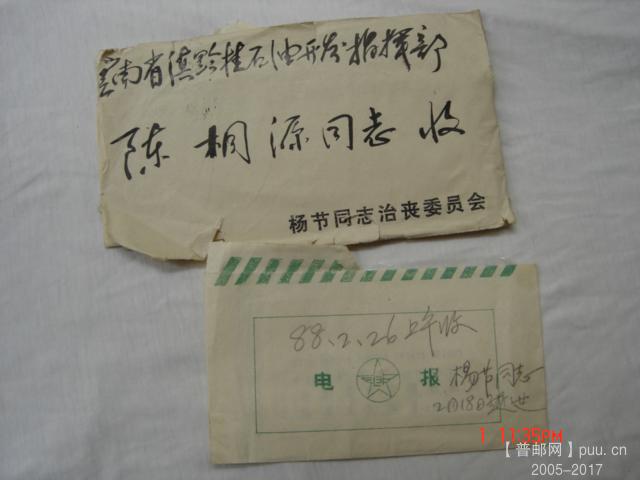 云南省滇黔桂石油开发指挥部
陈桐源同志 收
杨节同志治丧委员会
88.2.26上午收
电 报
杨节同志
2月18日逝世
1 11:35PM
【普邮网】puu.cn
2005-2017